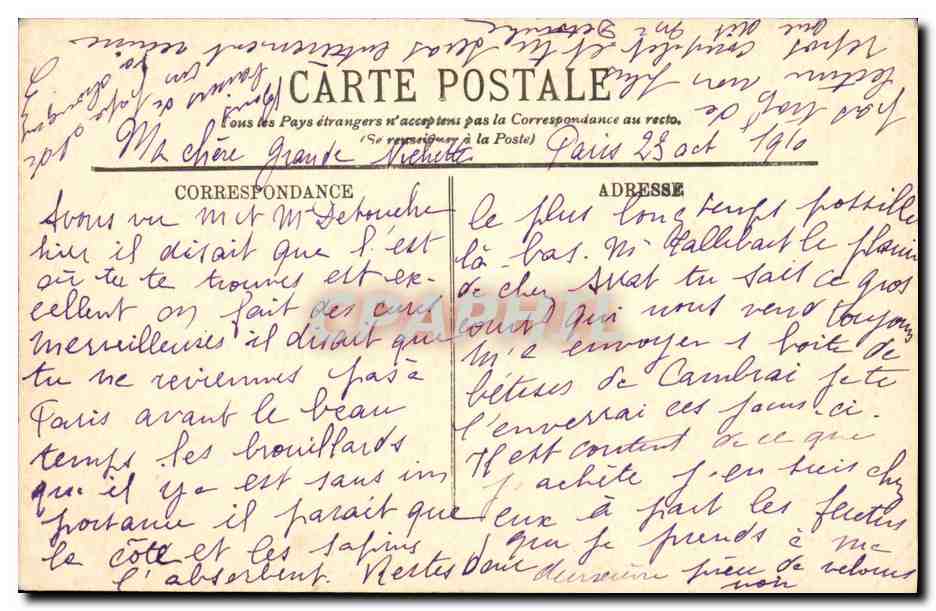 CARTE POSTALE
Tous les Pays étrangers n'acceptent pas la Correspondance au recto.
(Se renseigner à la Poste)
Ma chère grande Paris 23 oct 1910
CORRESPONDANCE
ADRESSE
Avons vu M et Me Debouche
hier il disait que l'est
où tu te trouves est ex-
cellent on fait des cures
merveilleuses il disait que
tu ne reviennes pas à
Paris avant le beau
temps. les brouillards
qu'il y a est sans im
portance il parait que
la côte et les sapins
l'absorbent. Restes donc
le plus longtemps possible
là-bas. Mr le
de chez tu sais ce gros
court qui nous vend toujours
m'a envoyer 1 boite de
bêtises de Cambrai je te
l'enverrai ces jours-ci.
Il est content de ce que
j'achète j'en suis chez
eux à part les
que je prends à ma
dernière pièce de velours
noir
pas trop de
lecture non plus
repos complet et tu seras entièrement remise
que dit Mr Debouche
CPAPHIL